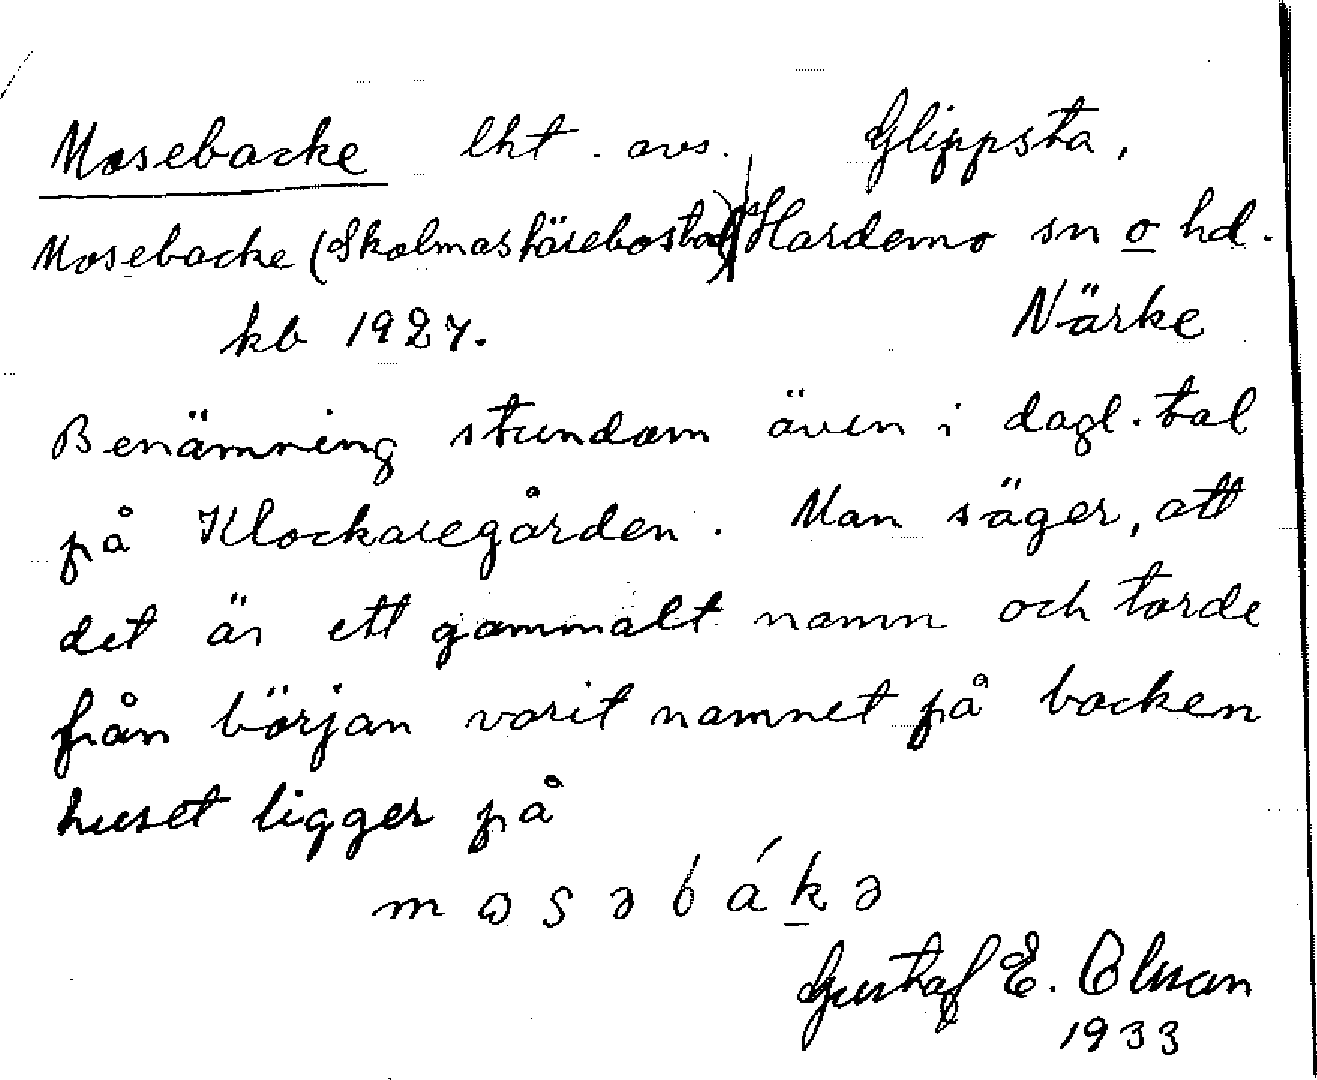 Mosebacke lht. avs. Glippsta,
Mosebacke (Skolmostärebostad) Hardemo sn o hd.
kb 1927. Närke
Benämning stundom även i dagl. tal
på Klockaregården. Man säger, att
det är ett gammalt namn och torde
från början varit namnet på backen
huset ligger på
Gustaf E. Olsson
1933